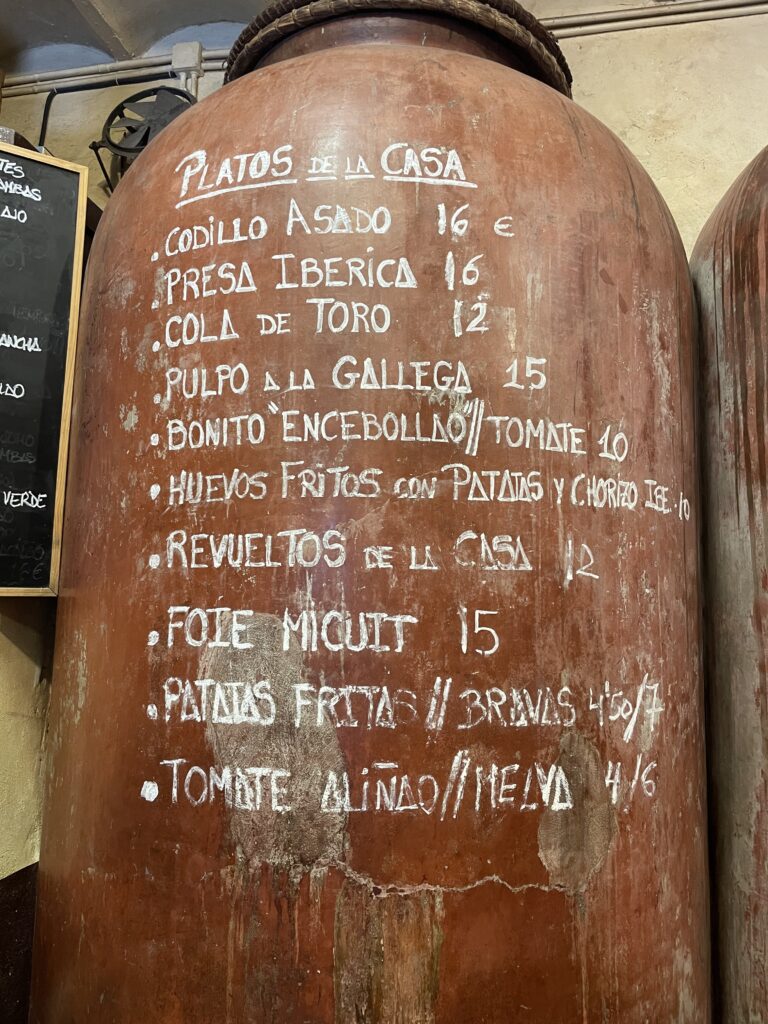 PLATOS DE LA CASA
• CODILLO ASADO 16 €
• PRESA IBERICA 16
• COLA DE TORO 12
• PULPO A LA GALLEGA 15
• BONITO "ENCEBOLLAO"//TOMATE 10
• HUEVOS FRITOS CON PATATAS Y CHORIZO IBE. 10
• REVUELTOS DE LA CASA 12
• FOIE MICUIT 15
• PATATAS FRITAS // BRAVAS 4'50/7
• TOMATE ALIÑAO//MELVA 4/6
AJO
VERDE